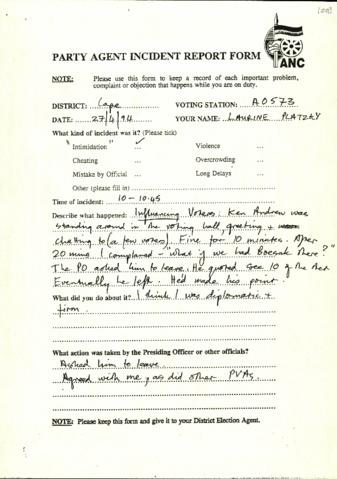 PARTY AGENT INCIDENT REPORT FORM
ANC
NOTE: Please use this form to keep a record of each important problem,
complaint or objection that happens while you are on duty.
DISTRICT: Cape VOTING STATION: A0573
DATE: 27/4/94 YOUR NAME: LAURINE PLATZKY
What kind of incident was it? (Please tick)
"Intimidation" ✓ Violence ...
Cheating ... Overcrowding ...
Mistake by Official ... Long Delays ...
Other (please fill in)
Time of incident: 10 - 10.45
Describe what happened: Influencing Voters. Ken Andrew was
standing around in the voting hall, greeting +
chatting to (a few voters). Fine for 10 minutes. After
20 mins I complained - what if we had Boesak there?"
The PO asked him to leave. He quoted sec 10 of the
Eventually he left. He'd made his point!
What did you do about it? I think I was diplomatic +
firm.
What action was taken by the Presiding Officer or other officials?
Asked him to leave.
Agreed with me, as did other PVAs.
NOTE: Please keep this form and give it to your District Election Agent.